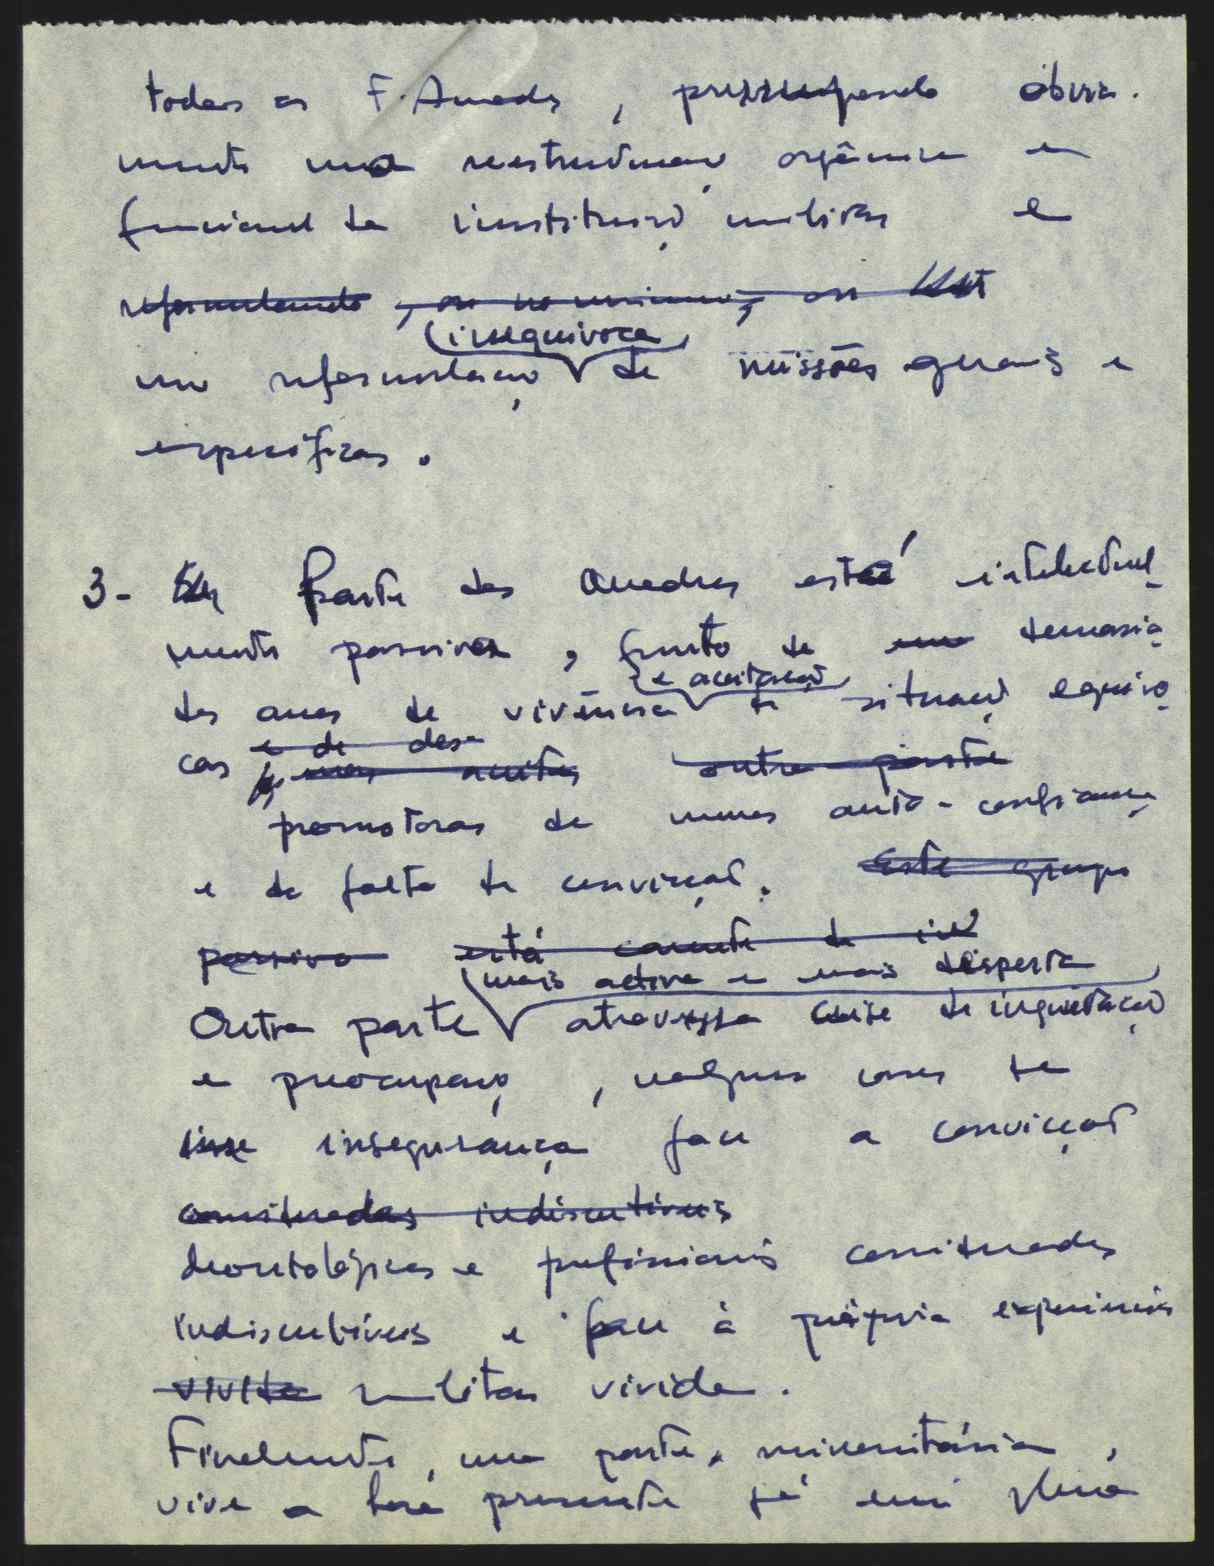 todas as F. Armadas, pressupondo óbvia-
mente uma reestruturação orgânica e
funcional da instituição militar e
reformulando, ou no mínimo, ou
(inequívoca)
uma reformulação de missões gerais e
específicas.
3- Parte dos Quadros está intelectual-
mente passiva, fruto de demasia-
e aceitação
dos anos de vivência de situação equívo-
e de desa
cas mas aceites outra parte
promotoras de menos auto-confiança
e de falta de convicção. Este grupo
passivo está carente de
mais activa e mais desperta
Outra parte atravessa crise de inquietação
e preocupação, nalguns casos de
insegurança face a convicção
consideradas indiscutíveis
deontológicas e profissionais consideradas
indiscutíveis e face à própria experiência
vivida militar vivida.
Finalmente, uma parte, minoritária,
vive a hora presente já em plena